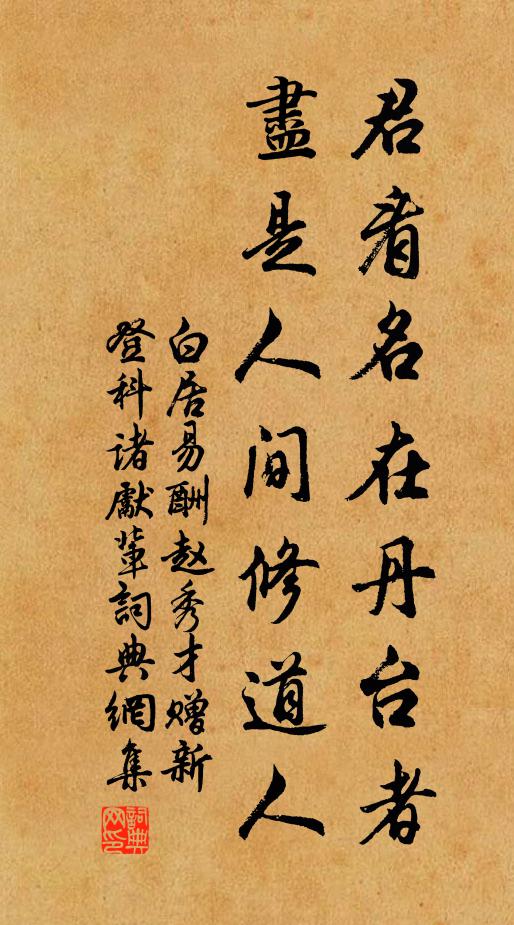 君看名在丹台者
盡是人间修道人
白居易酬赵秀才赠新
登科诸獻輩詞典網集
詞典
网印